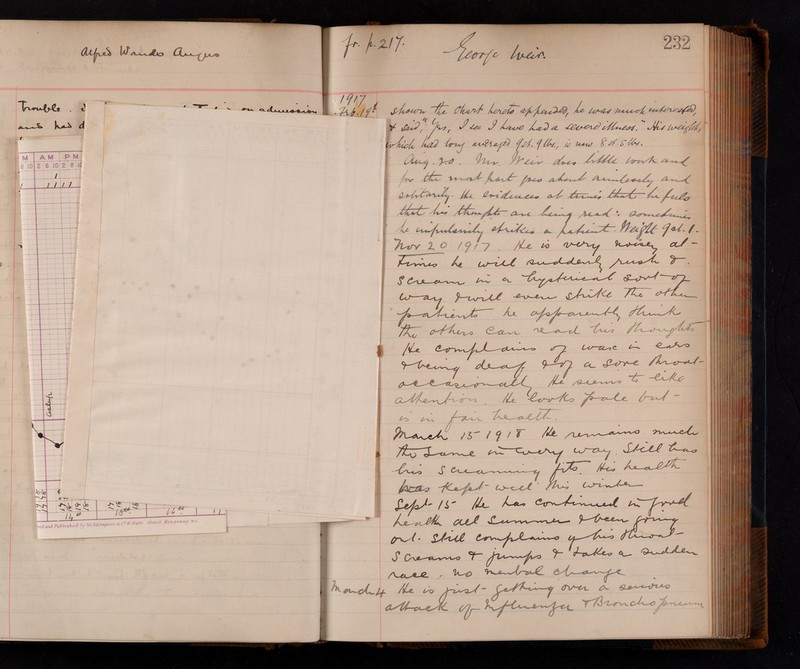 Alfred Wardes Angus
Trouble.
M AM PM
asleep
fr. p. 217. George Weir. 232
1917
Feb 19th shown the chart hereto appended, he was much interested,
& said "Yes, I see I have had a severe illness." His weight,
which had long averaged 9st. 9 lbs, is now 8st. 5 lbs.
Aug. 20. Mr. Weir does little work and
for the most part goes about aimlessly and
solitarily. He evidences at times that he feels
that his thoughts are being read: sometimes
he impulsively strikes a patient. Weight 9st. 1.
Nov 20 1917. He is very noisy at
times he will suddenly rush &
scream in a hysterical sort of
way & will even strike the other
patients he apparently think
the others can read his thoughts
He complains of wax in ears
& being deaf & of a sore throat
occasionally He seems to like
attention. He looks pale but
is in fair health.
March 15 1918 He remains much
the same in every way. Still has
his screaming fits. His health
has kept well this winter
Sept 15 He has continued in good
health all summer & been going
out. Still complains of his throat
Screams & jumps & takes a sudden
race. no mental change
March 4 He is just getting over a serious
attack of Influenza & Bronchopneum